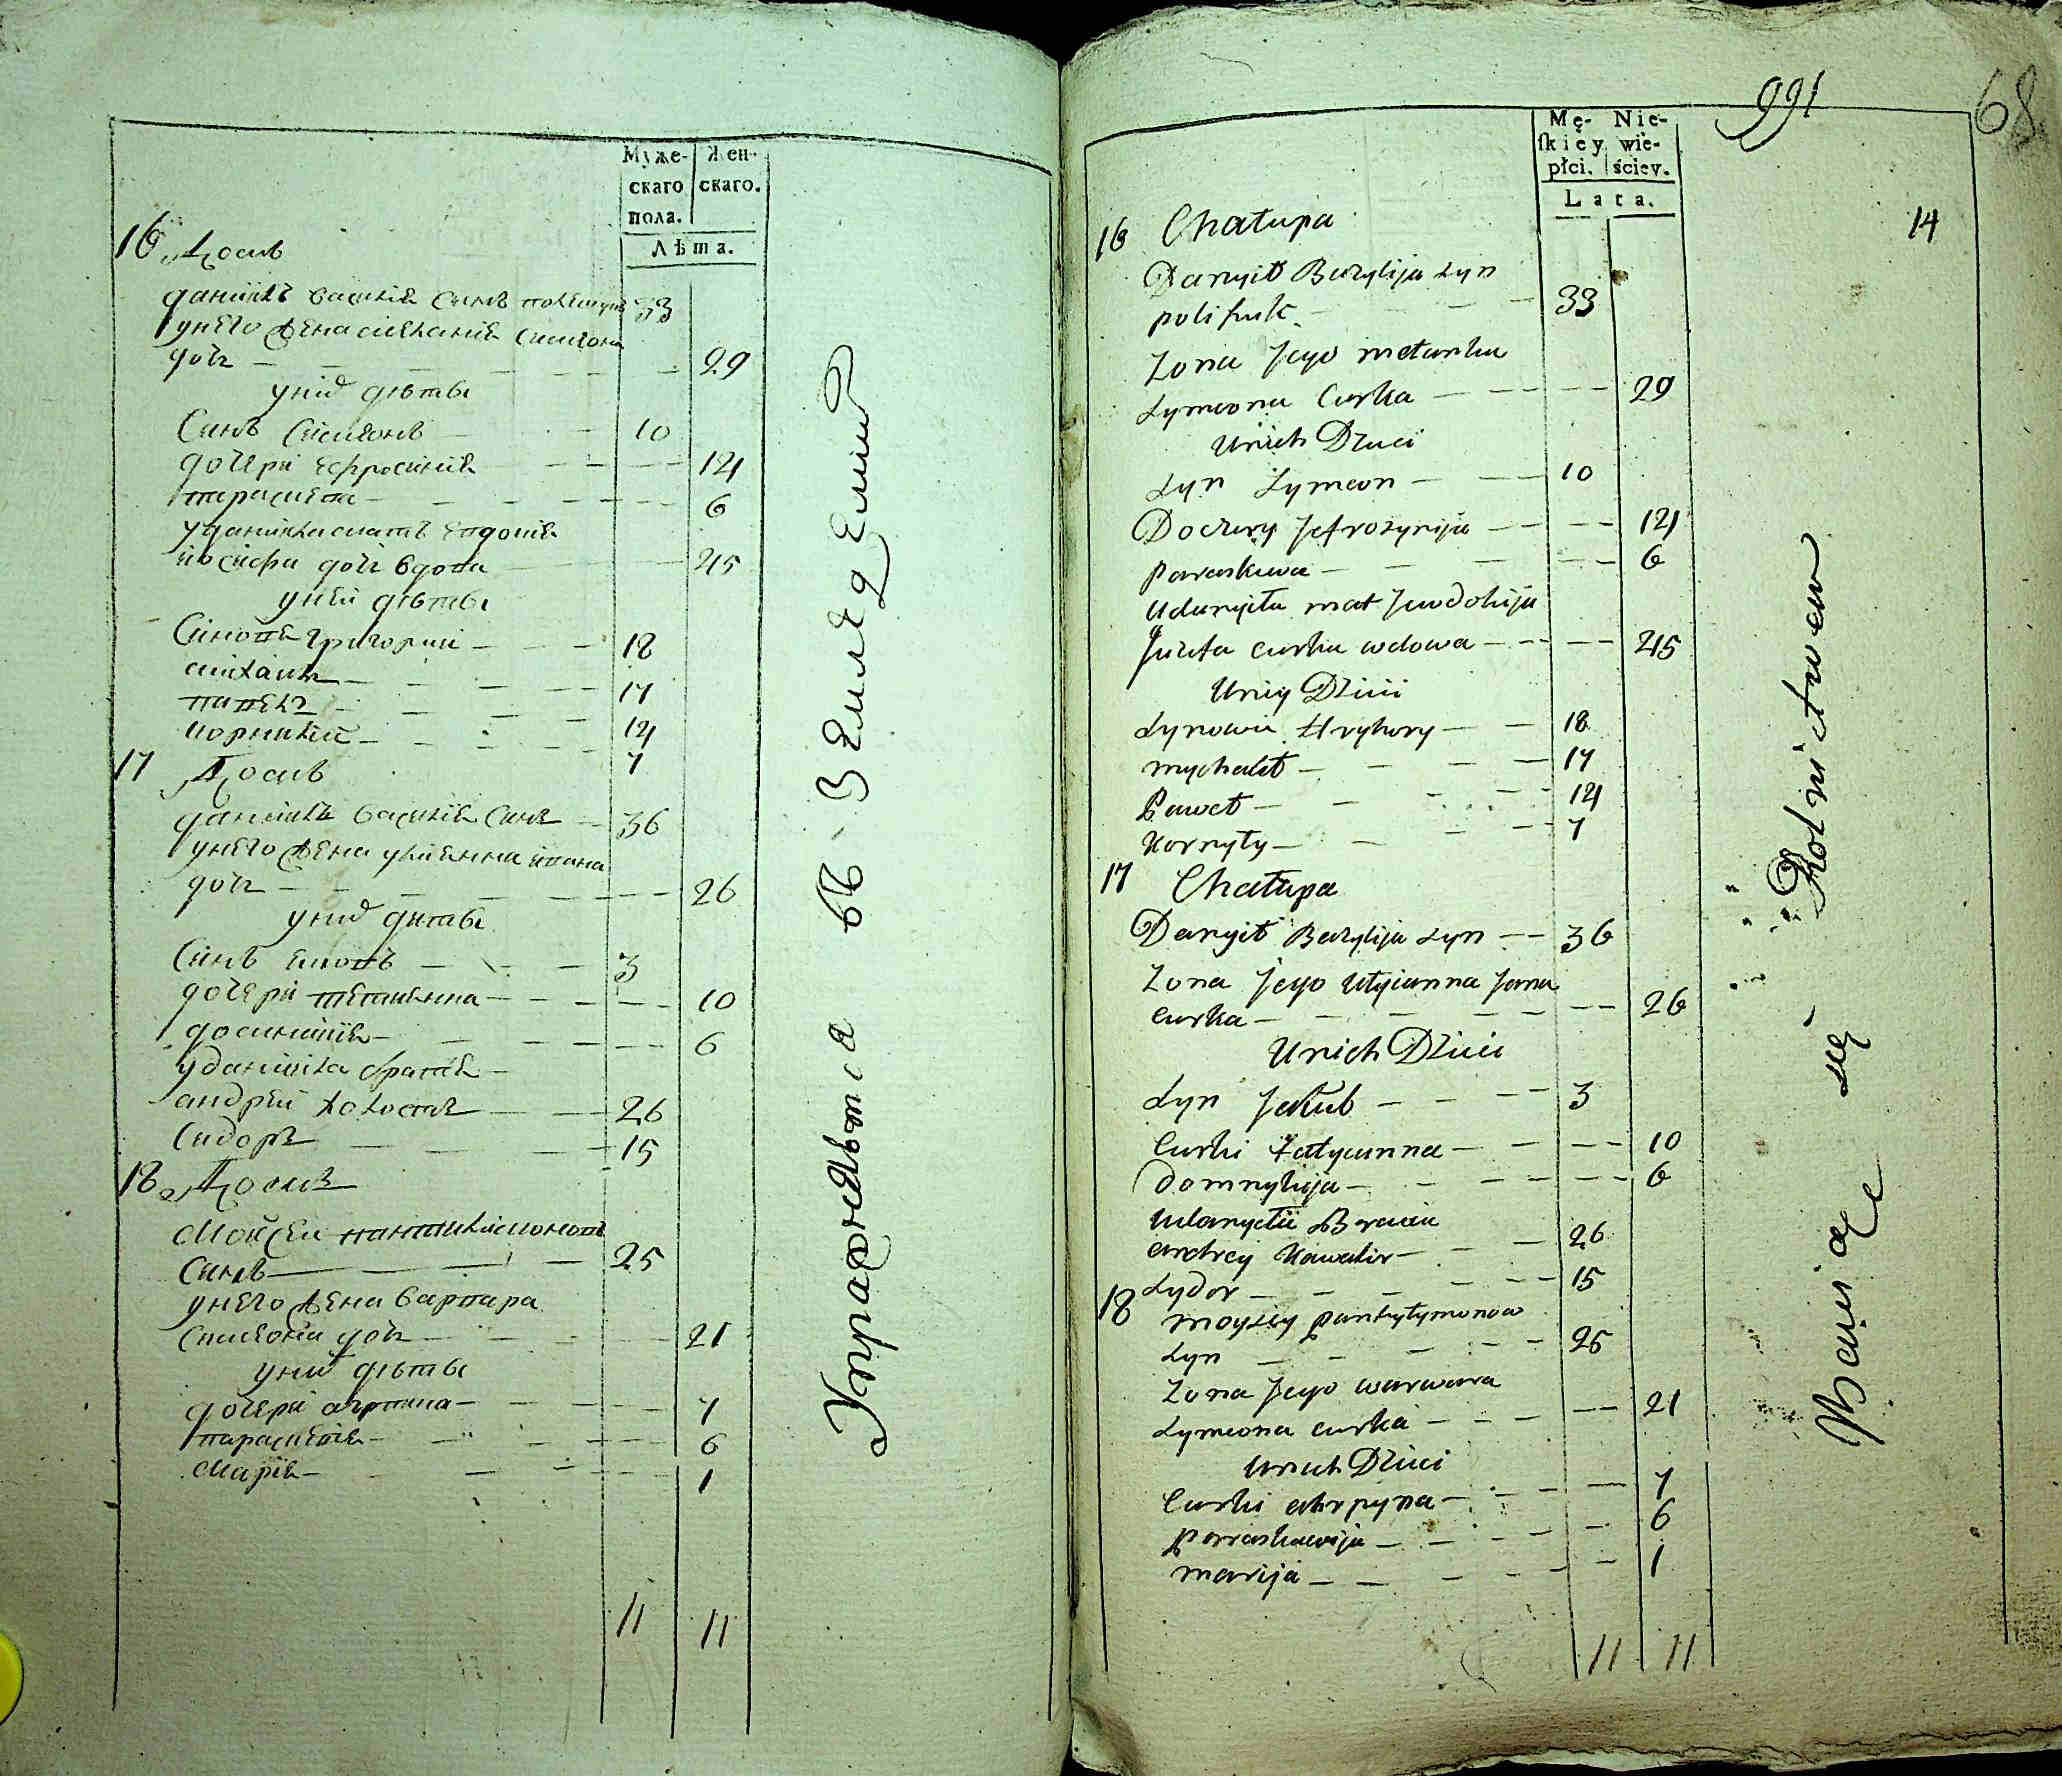 Муже- Жен-
скаго скаго.
пола.
Лѣта.
16 Домъ
Даниилъ василия Синъ 33
унего Жена мелания Симеона
дочь 29
уних дѣти
Синъ Симеонъ 10
дочери ефросиния 14
параскева 6
уданиила мать евдокия
иосифа дочь вдова 45
уней дѣти
Синовя григорий 18
михаилъ 17
павелъ 14
корнилий 7
17 Домъ
даниилъ василия Синъ 36
унего Жена улиянна ивана
дочь 26
уних дѣти
Синъ 3
дочери татиянна 10
домникия 6
уданиила братья
андрей холостъ 26
Сидоръ 15
18 Домъ
Мойсей пантилимоновъ
Синъ 25
унего Жена варвара
Симеона дочь 21
уних дѣти
дочери агрипина 7
параскевия 6
Мария 1
11 11
Упражняется въ Земледелии
991
68
Mę- Nie-
skiey wie-
płci. ściey.
Lata.
14
16 Chałupa
Danyił Bazylija syn
33
Zona Jego mełanka
symeona Curka 29
Unich Dzieci
syn Symeon 10
Doczery Jefrozynija 14
paraskiewa 6
Udanyiła mat Jewdokija
Juzefa curka wdowa 45
Uniey Dzieci
synowie Hryhory 18
mychałł 17
Paweł 14
Kornyły 7
17 Chałupa
Danyił Bazylija syn 36
Zona Jego Ulyianna Jana
curka 26
Unich Dzieci
syn Jakub 3
Curki Tatyanna 10
Domnykija 6
Udanyiła Bracia
andrey Kawaler 26
sydor 15
18 moysey pantyłymonow
syn 25
Zona Jego warwara
symeona curka 21
Unich Dzieci
Curki ahrpyna 7
paraskewija 6
marija 1
11 11
Bawiące się Rolnictwem